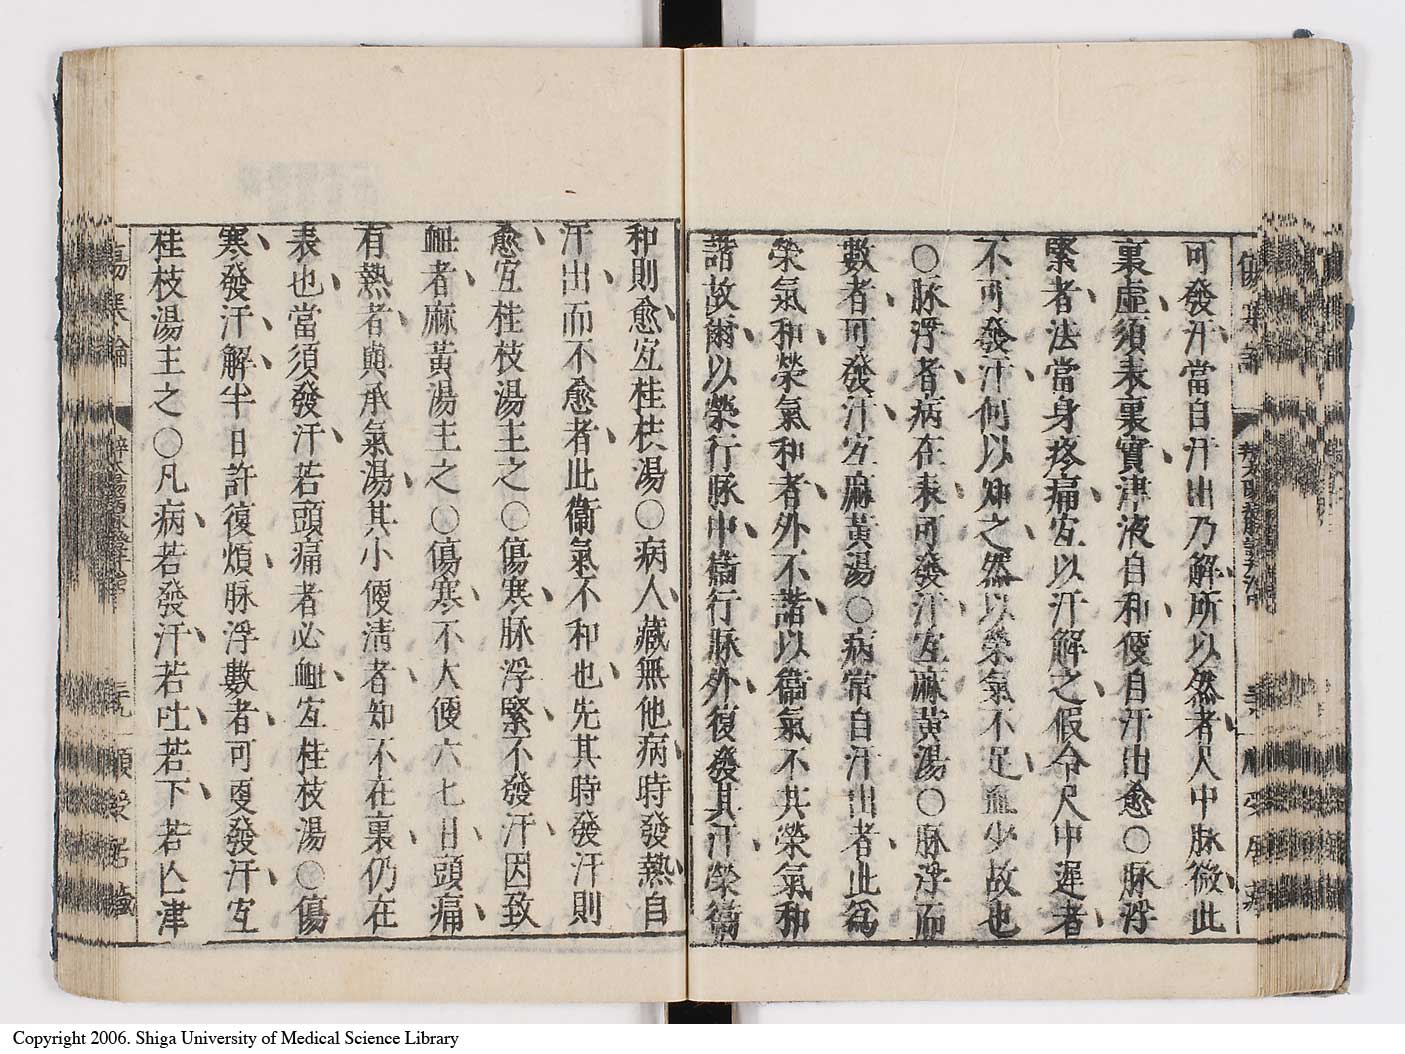 可發汗當自汗出乃解所以然者尺中脉微此
裏虛須表裏實津液自和便自汗出愈○脉浮
緊者法當身疼痛宜以汗解之假令尺中遲者
不可發汗何以知之然以榮氣不足血少故也
○脉浮者病在表可發汗宜麻黃湯○脉浮而
數者可發汗宜麻黃湯○病常自汗出者此爲
榮氣和榮氣和者外不諧以衞氣不共榮氣和
諧故爾以榮行脉中衞行脉外復發其汗榮衞
和則愈宜桂枝湯○病人藏無他病時發熱自
汗出而不愈者此衞氣不和也先其時發汗則
愈宜桂枝湯主之○傷寒脉浮緊不發汗因致
衄者麻黃湯主之○傷寒不大便六七日頭痛
有熱者與承氣湯其小便淸者知不在裏仍在
表也當須發汗若頭痛者必衄宜桂枝湯○傷
寒發汗解半日許復煩脉浮數者可更發汗宜
桂枝湯主之○凡病若發汗若吐若下若亡津
傷寒論
Copyright 2006. Shiga University of Medical Science Library